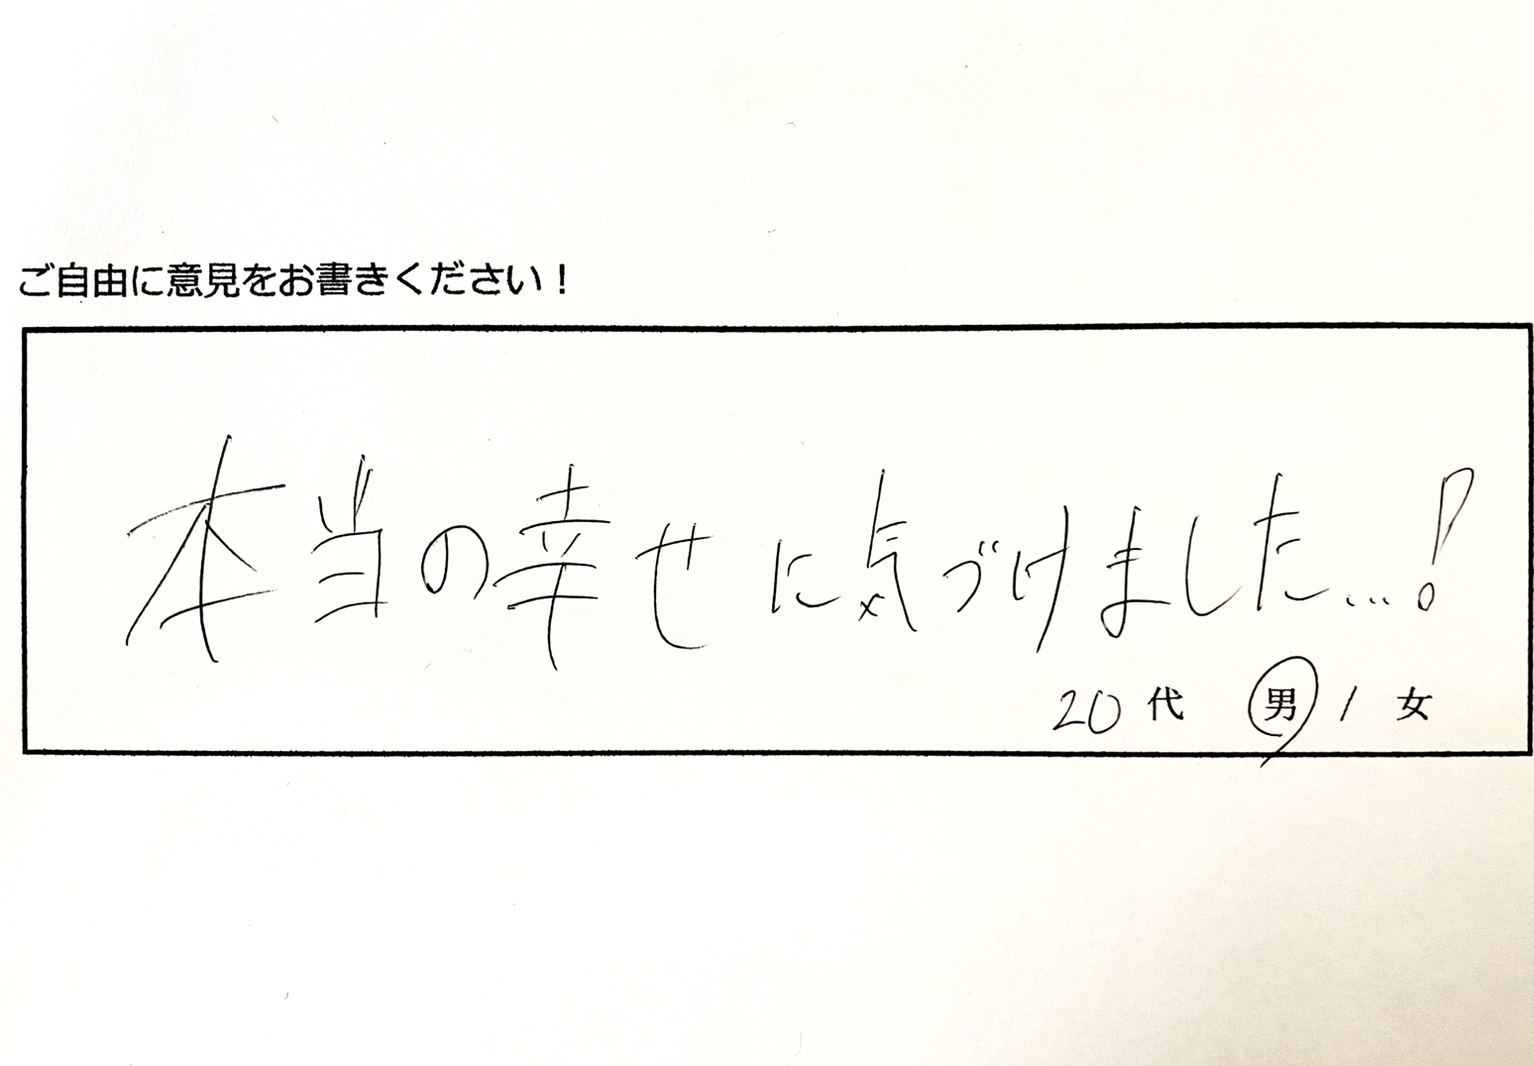 ご自由に意見をお書きください！
本当の幸せに気づけました...！
20代 男 / 女